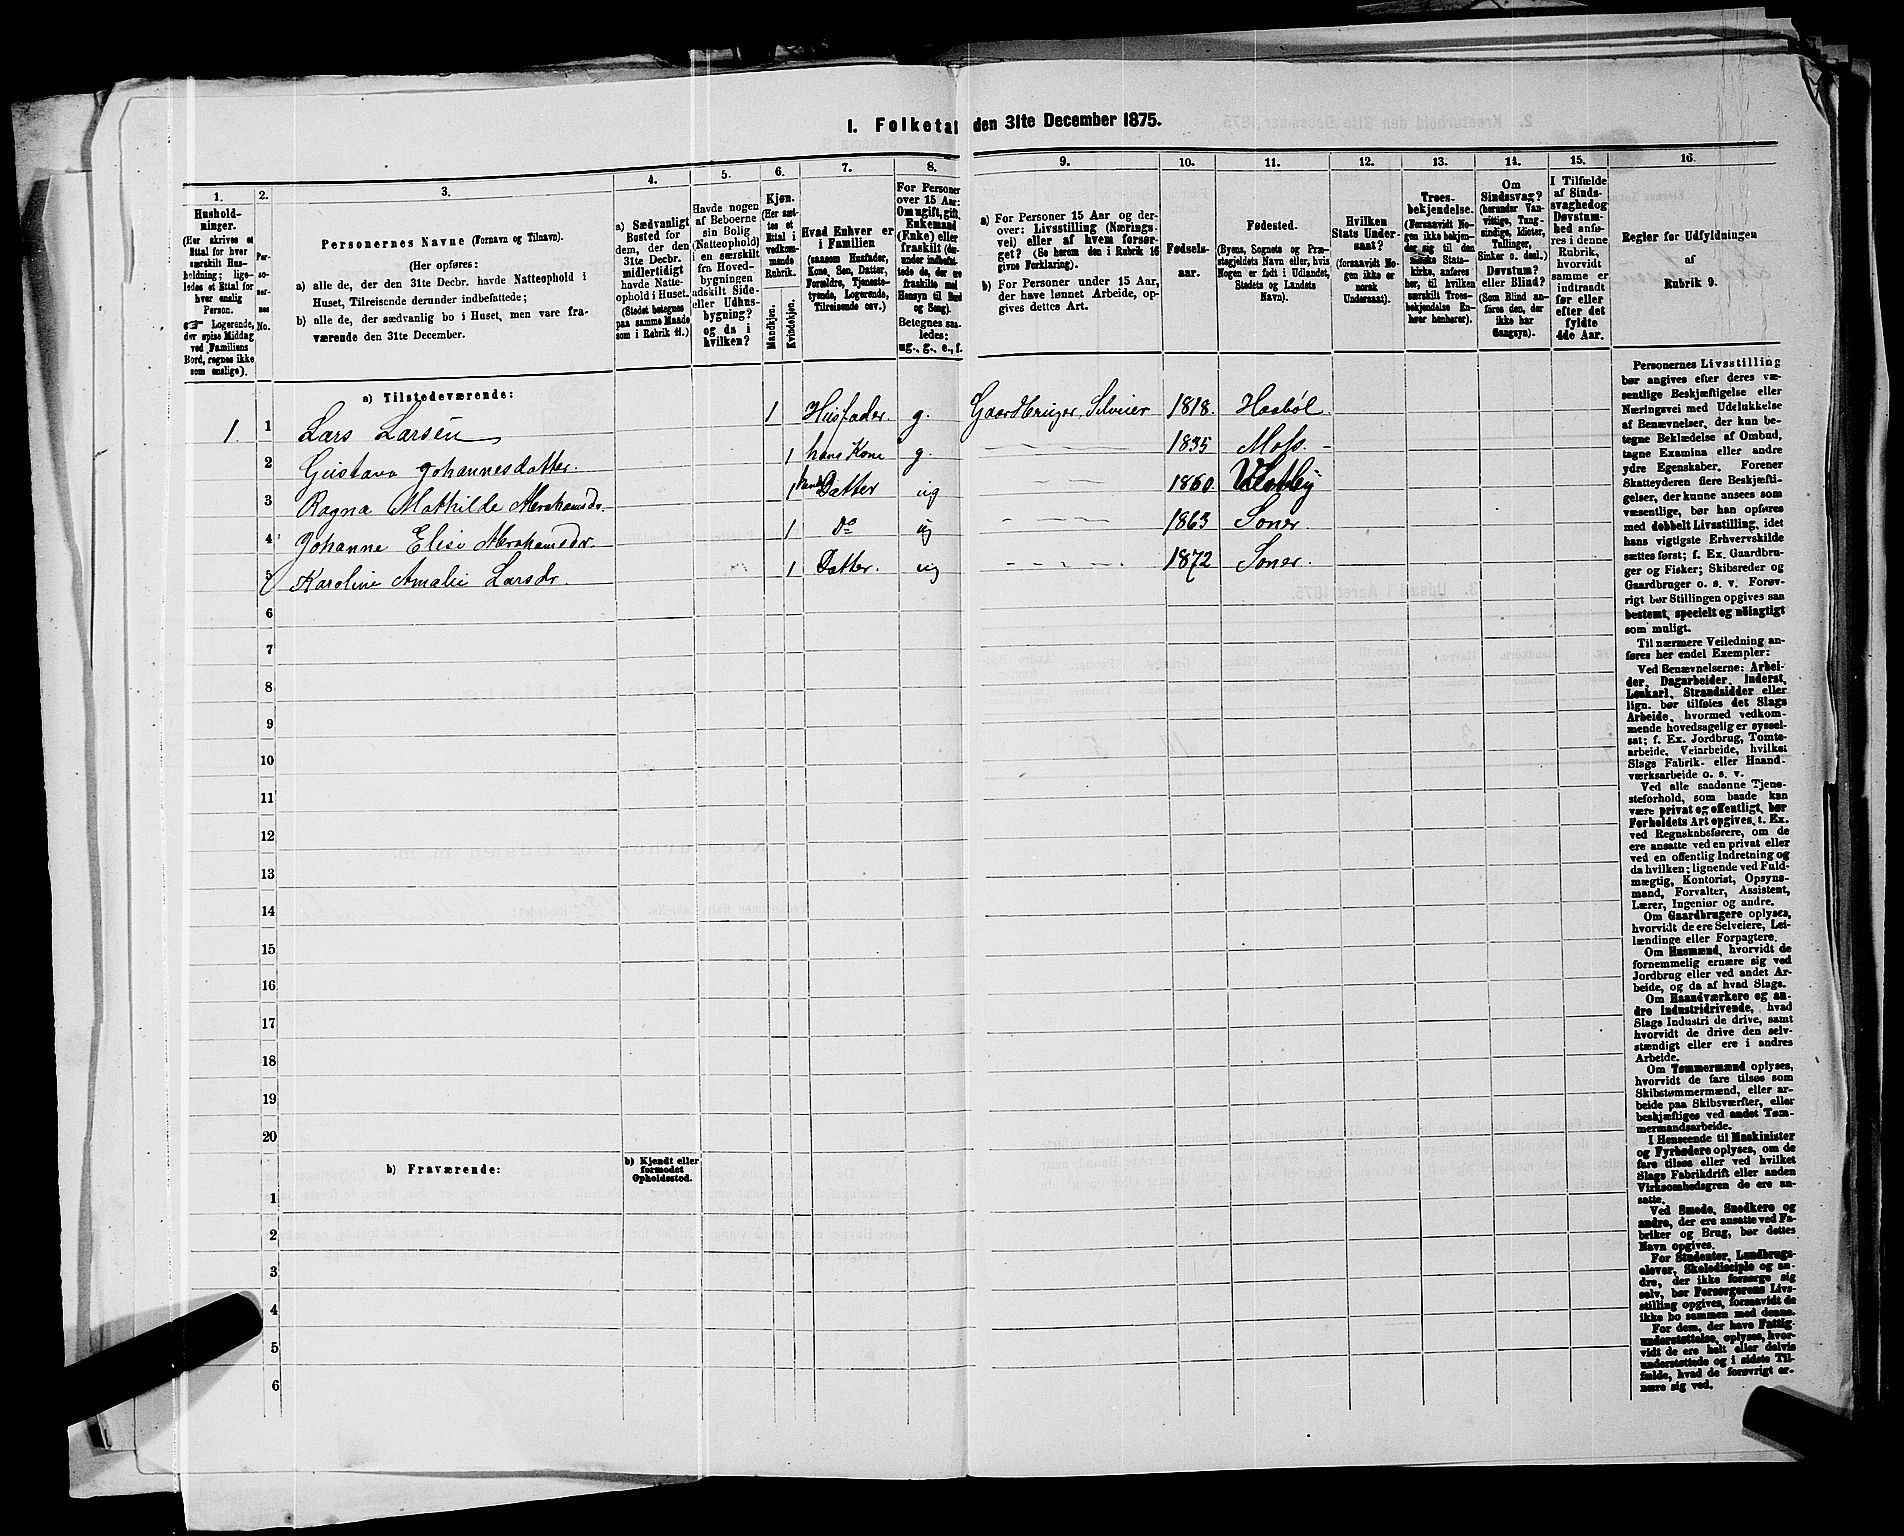 1. Folketal den 31te December 1875.
1. 2. 3. 4. 5. 6. 7. 8. 9. 10. 11. 12. 13. 14. 15. 16.
Hushold-
ninger.
(Her skrives et
Ettal for hver
særskilt Hus-
holdning; lige-
ledes et Ettal for
hver enslig
Person.
☞ Logerende,
der spise Middag
ved Familiens
Bord, regnes ikke
som enslige).
Per-
so-
ner-
nes
No.
Personernes Navne (Fornavn og Tilnavn).
(Her opføres:
a) alle de, der den 31te Decbr. havde Natteophold i
Huset, Tilreisende derunder indbefattede;
b) alle de, der sædvanlig bo i Huset, men vare fra-
værende den 31te December.
a) Sædvanligt
Bosted for
dem, der den
31te Decbr.
midlertidigt
havde Natte-
ophold i Huset.
(Stedet betegnes
paa samme Maade
som i Rubrik 11.)
Havde nogen
af Beboerne
sin Bolig
(Natteophold)
i en særskilt
fra Hoved-
bygningen
adskilt Side-
eller Udhus-
bygning?
og da i
hvilken?
Kjøn.
(Her sæt-
tes et
Ettal i
vedkom-
mende
Rubrik.
Mandkjøn.
Kvindekjøn.
Hvad Enhver er
i Familien
(saasom Husfader,
Kone, Søn, Datter,
Forældre, Tjeneste-
tyende, Logerende,
Tilreisende osv.)
For Personer
over 15 Aar:
Om ugift, gift,
Enkemand
(Enke) eller
fraskilt (der-
under indbefat-
tede de, der ere
fraskilte med
Hensyn til Bord
og Seng).
Betegnes saa-
ledes:
ug., g., e., f.
a) For Personer 15 Aar og der-
over: Livsstilling (Nærings-
vei) eller af hvem forsør-
get? (Se herom den i Rubrik 16
givne Forklaring).
b) For Personer under 15 Aar,
der have lønnet Arbeide, op-
gives dettes Art.
Fødsels-
aar.
Fødested.
(Byens, Sognets og Præ-
stegjeldets Navn eller, hvis
Nogen er født i Udlandet,
Stedets og Landets
Navn).
Hvilken
Stats Under-
saat?
(forsaavidt No-
gen ikke er
norsk
Undersaat).
Troes-
bekjendelse.
(Forsaavidt No-
gen ikke bekjen-
der sig til den
norske Stats-
kirke, anføres
her, til hvilken
særskilt Troes-
bekjendelse En-
hver henhører).
Om
Sindssvag?
(herunder Van-
vittige, Tung-
sindige, Idioter,
Tullinger,
Sinker o. desl.)
Døvstum?
eller Blind?
(Som Blind an-
føres den, der
ikke har
Gangsyn).
I Tilfælde
af Sinds-
svaghed og
Døvstum-
hed anfø-
res i denne
Rubrik,
hvorvidt
samme er
indtraadt
før eller
efter det
fyldte
4de Aar.
Regler for Udfyldningen
af
Rubrik 9.
a) Tilstedeværende:
1. 1 Lars Larsen 1 Husfader g. Gaardbruger, Selveier 1818. Haabøl.
2 Gustava Johannesdatter. 1 hans Kone g. 1835 Moss.
3 Ragna Mathilde Abrahamsdr. 1 hendes Datter ug 1860 Vestby
4 Johanne Elise Abrahamsdr. 1 Do ug 1863 Soner.
5 Karoline Amalie Larsdr. 1 Datter. ug 1872 Soner.
6
7
8
9
10
11
12
13
14
15
16
17
18
19
20
b) Fraværende:
b) Kjendt eller
formodet
Opholdssted.
1
2
3
4
5
6
Personernes Livsstilling
bør angives efter deres væ-
sentlige Beskjæftigelse eller
Næringsvei med Udelukkelse
af Benævnelser, der kun be-
tegne Beklædelse af Ombud,
tagne Examina eller andre
ydre Egenskaber. Forener
Skatteyderen flere Beskjæfti-
gelser, der kunne ansees som
væsentlige, bør han opføres
med dobbelt Livsstilling, idet
hans vigtigste Erhvervskilde
sættes først; f. Ex. Gaardbru-
ger og Fisker; Skibsreder og
Gaardbruger o. s. v. Forøv-
rigt bør Stillingen opgives saa
bestemt, specielt og nöiagtigt
som muligt.
Til nærmere Veiledning an-
føres her endel Exempler:
Ved Benævnelserne: Arbei-
der, Dagarbeider, Inderst,
Løskarl, Strandsidder eller
lign. bør tilføies det Slags
Arbeide, hvormed vedkom-
mende hovedsagelig er syssel-
sat; f. Ex. Jordbrug, Tomte-
arbeide, Veiarbeide, hvilket
Slags Fabrik- eller Haand-
værksarbeide o. s. v.
Ved alle saadanne Tjene-
steforhold, som baade kan
være privat og offentligt, bør
Forholdets Art opgives, t. Ex.
ved Regnskabsførere, om de
ere ansatte ved en privat eller
ved en offentlig Indretning og
da hvilken; lignende ved Fuld-
mægtig, Kontorist, Opsyns-
mand, Forvalter, Assistent,
Lærer, Ingeniør og andre.
Om Gaardbrugere oplyses,
hvorvidt de ere Selveiere, Lei-
lændinge eller Forpagtere.
Om Husmænd, hvorvidt de
fornemmelig ernære sig ved
Jordbrug eller ved andet Ar-
beide, og da af hvad Slags.
Om Haandværkere og an-
dre Industridrivende, hvad
Slags Industri de drive, samt
hvorvidt de drive den selv-
stændigt eller ere i andres
Arbeide.
Om Tømmermænd oplyses,
hvorvidt de fare tilsøs som
Skibstømmermænd, eller ar-
beide paa Skibsværfter, eller
beskjæftiges ved andet Tøm-
mermandsarbeide.
I Henseende til Maskinister
og Fyrbødere oplyses, om de
fare tilsøs eller ved hvilket
Slags Fabrikdrift eller anden
Virksomhedsgren de ere an-
satte.
Ved Smede, Snedkere og
andre, der ere ansatte ved Fa-
briker og Brug, bør dettes
Navn opgives.
For Studenter, Landbrugs-
elever, Skoledisciple og an-
dre, der ikke forsørge sig
selv, bør Forsørgerens Livs-
stilling opgives, forsaavidt de
ikke bo sammen med denne.
For dem, der have Fattig-
understøttelse, oplyses, hvor-
vidt de ere helt eller delvis
understøttede og i sidste Til-
fælde, hvad de forøvrigt er-
nære sig ved.